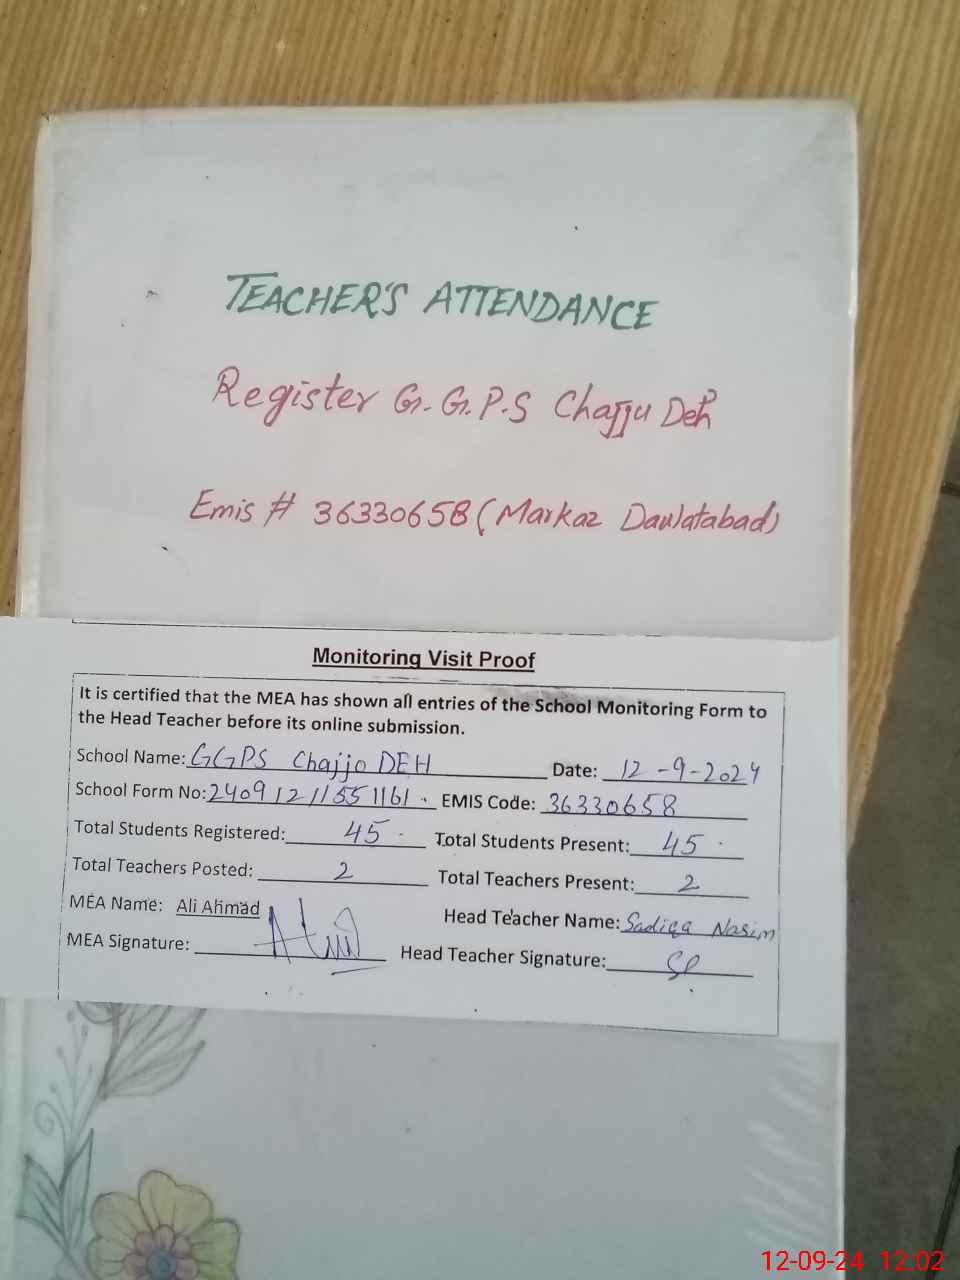 TEACHER'S ATTENDANCE
Register G.G.P.S Chajju Deh
Emis # 36330658 (Markaz Daulatabad)
Monitoring Visit Proof
It is certified that the MEA has shown all entries of the School Monitoring Form to
the Head Teacher before its online submission.
School Name: GGPS Chajjo DEH Date: 12-9-2024
School Form No: 24091211551161. EMIS Code: 36330658
Total Students Registered: 45 Total Students Present: 45
Total Teachers Posted: 2 Total Teachers Present: 2
MEA Name: Ali Ahmad Head Teacher Name: Sadiqa Nasim
MEA Signature: Head Teacher Signature:
12-09-24 12:02